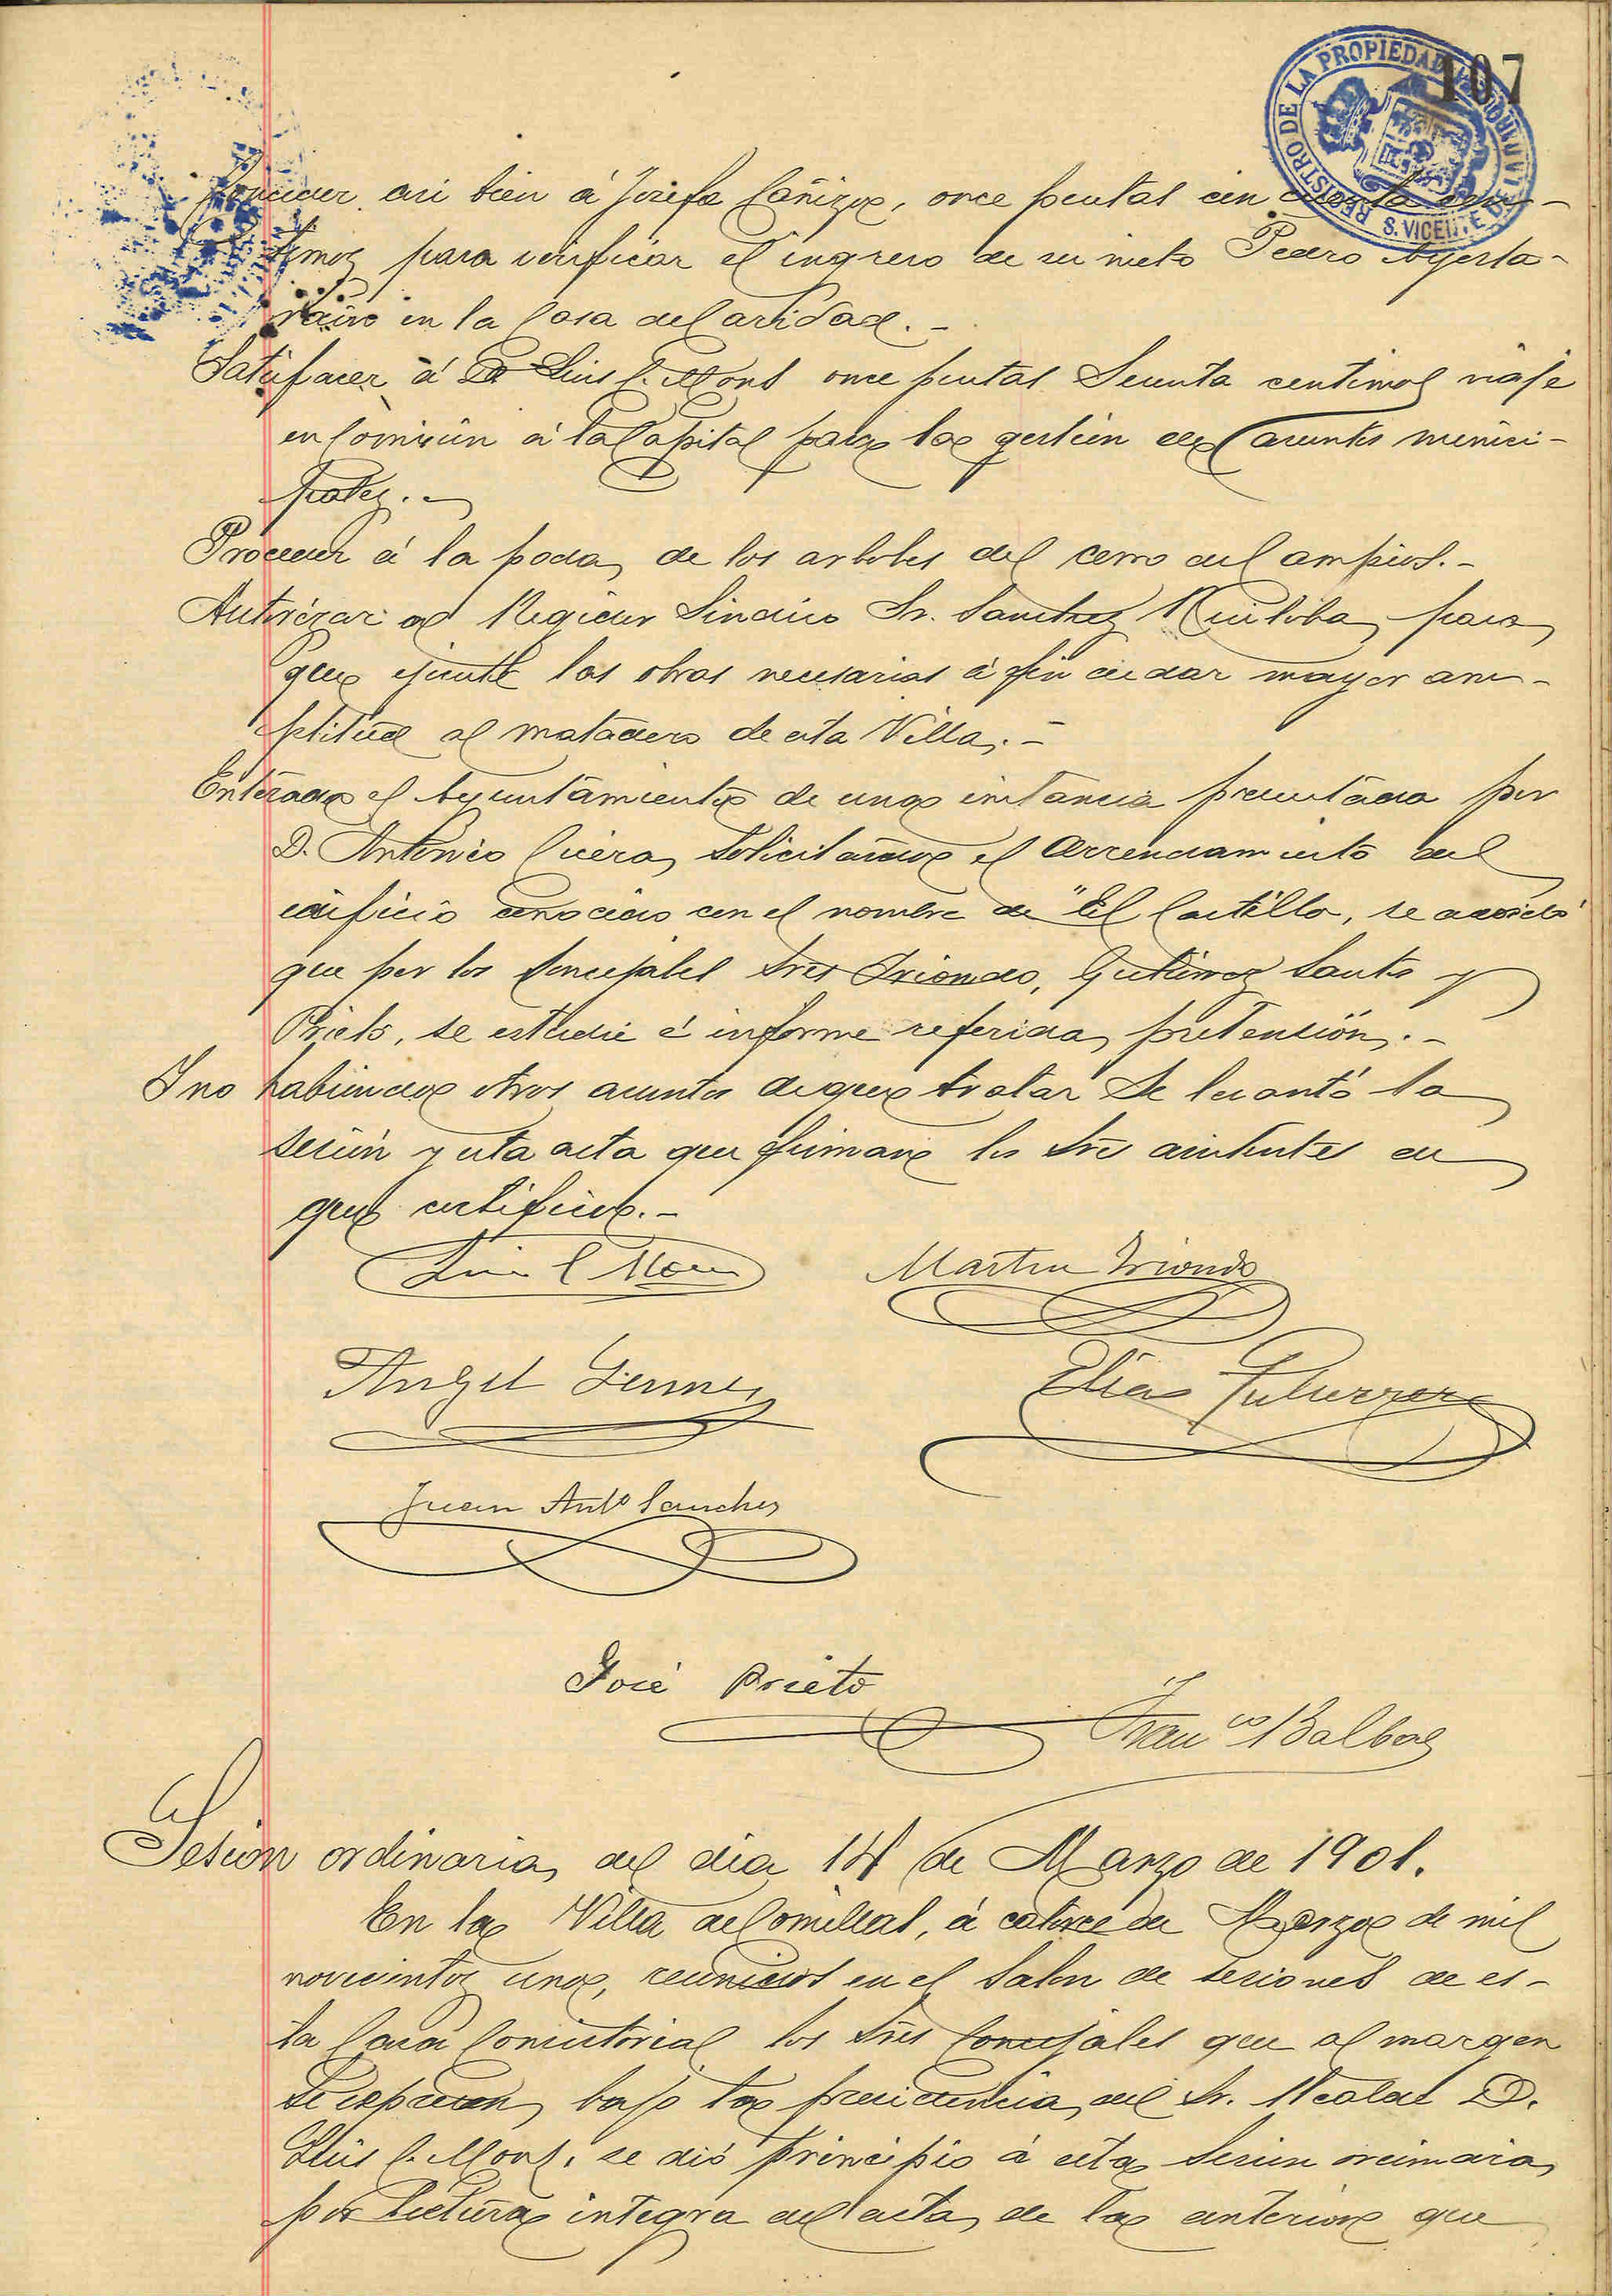 107
REGISTRO DE LA PROPIEDAD
S. VICENTE DE LA BARQUERA
Conceder asi bien á Josefa Cañizo, once pesetas cin cuenta cen-
timos para verificar el ingreso de su nieto Pedro
en la Casa de Caridad.-
Satisfacer á D. Luis C. Mons once pesetas sesenta centimos viaje
en Comisión á la Capital para la gestión de asuntos munici-
pales.-
Proceder á la poda de los arboles del cerro del ampios.-
Autorizar al Regidor Sindico Sr. Sanchez Ruiloba para
que ejecute las obras necesarias á fin de dar mayor am-
plitud al matadero de esta Villa.-
Enterado el Ayuntamiento de una instancia presentada por
D. Antonio Cuera solicitando el arrendamiento del
edificio conocido con el nombre de "El Castillo, se acordó
que por los Concejales Sres Triondo, Gutierrez Santos y
Prieto, se estudie é informe referida pretensión.-
Y no habiendo otros asuntos de que tratar se levantó la
sesión y esta acta que firman los Sres asistentes de
que certifico.-
Luis C Mons
Martin Triondo
Angel
Elias Gutierrez
Juan Antº Sanchez
José Prieto
Franco Balbas
Sesión ordinaria del dia 14 de Marzo de 1901.
En la Villa de Comillas, á catorce de Marzo de mil
novecientos uno, reunidos en el Salon de sesiones de es-
ta Casa Consistorial los Sres Concejales que al margen
se expresan, bajo la presidencia del Sr. Alcalde D.
Luis C. Mons, se dió principio á esta Sesion ordinaria
por lectura integra del acta de la anterior que